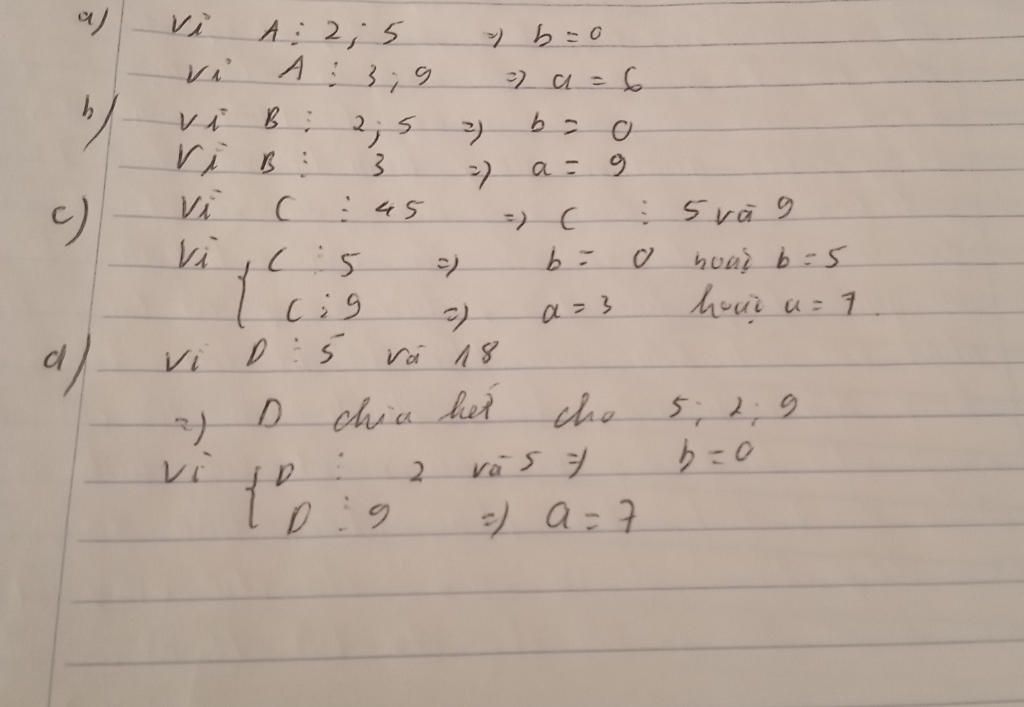 a) Vì A ⋮ 2 ; 5 => b = 0
Vì A ⋮ 3 ; 9 => a = 6
b) Vì B ⋮ 2 ; 5 => b = 0
Vì B ⋮ 3 => a = 9
c) Vì C ⋮ 45 => C ⋮ 5 và 9
Vì { C ⋮ 5 => b = 0 hoặc b = 5
C ⋮ 9 => a = 3 hoặc a = 7.
d) Vì D ⋮ 5 và 18
=> D chia hết cho 5 ; 2 ; 9
Vì { D ⋮ 2 và 5 => b = 0
D ⋮ 9 => a = 7